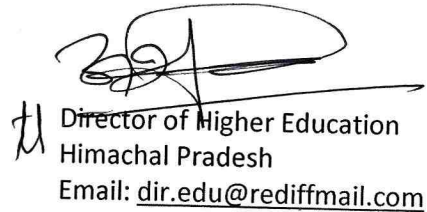 Director of Higher Education
Himachal Pradesh
Email: dir.edu@rediffmail.com